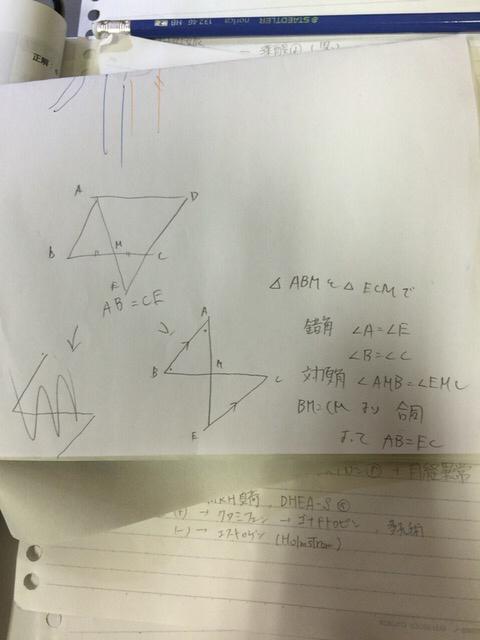 STAEDTLER norica 132 46 HB 2
正解・
A
D
B
M
C
E
AB=CE
A
B
M
C
E
△ABMと△ECMで
錯角 ∠A=∠E
∠B=∠C
対頂角 ∠AMB=∠EMC
BM=CMより 合同
よって AB=EC
負荷、DHEA-S
(+) → クロミフェン → ゴナドトロピン、手術
(-) → エストロゲン (Holmstrom)